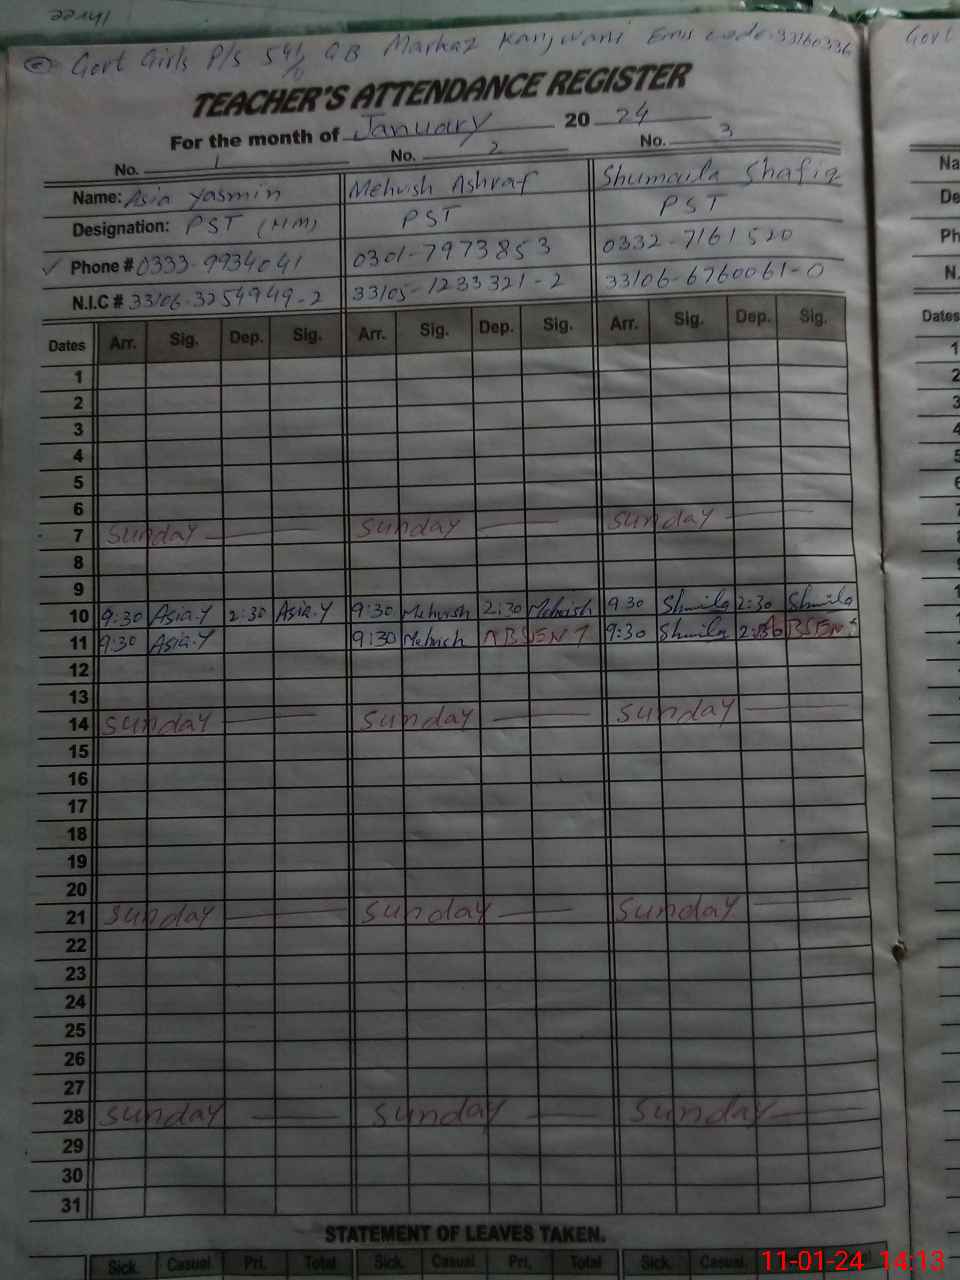 Govt Girls P/S 541/ GB Markaz Kanjwani Emis code. 33160336
Govt
TEACHER'S ATTENDANCE REGISTER
For the month of January 20 24
No. 1 No. 2 No. 3
Name: Asia Yasmin Mehvish Ashraf Shumaila Shafiq
Designation: PST (HM) PST PST
✓ Phone # 0333-9934041 0301-7973853 0332-7161520
N.I.C # 33106-3254949-2 33105-1233321-2 33106-6760061-0
Dates Arr. Sig. Dep. Sig. Arr. Sig. Dep. Sig. Arr. Sig. Dep. Sig.
1
2
3
4
5
6
7 Sunday — Sunday — Sunday —
8
9
10 9:30 Asia.Y 2:30 Asia.Y 9:30 Mehvish 2:30 Mehvish 9:30 Shmila 2:30 Shmila
11 9:30 Asia.Y 9:30 Mehvish ABSENT 9:30 Shmila 2:30 ABSENT
12
13
14 Sunday — Sunday — Sunday —
15
16
17
18
19
20
21 Sunday — Sunday — Sunday —
22
23
24
25
26
27
28 Sunday — Sunday — Sunday —
29
30
31
STATEMENT OF LEAVES TAKEN.
Sick. Casual. Pri. Total Sick. Casual Pri. Total Sick. Casual.
Na
De
Ph
N.
Dates
1
2
3
4
5
11-01-24 14:13